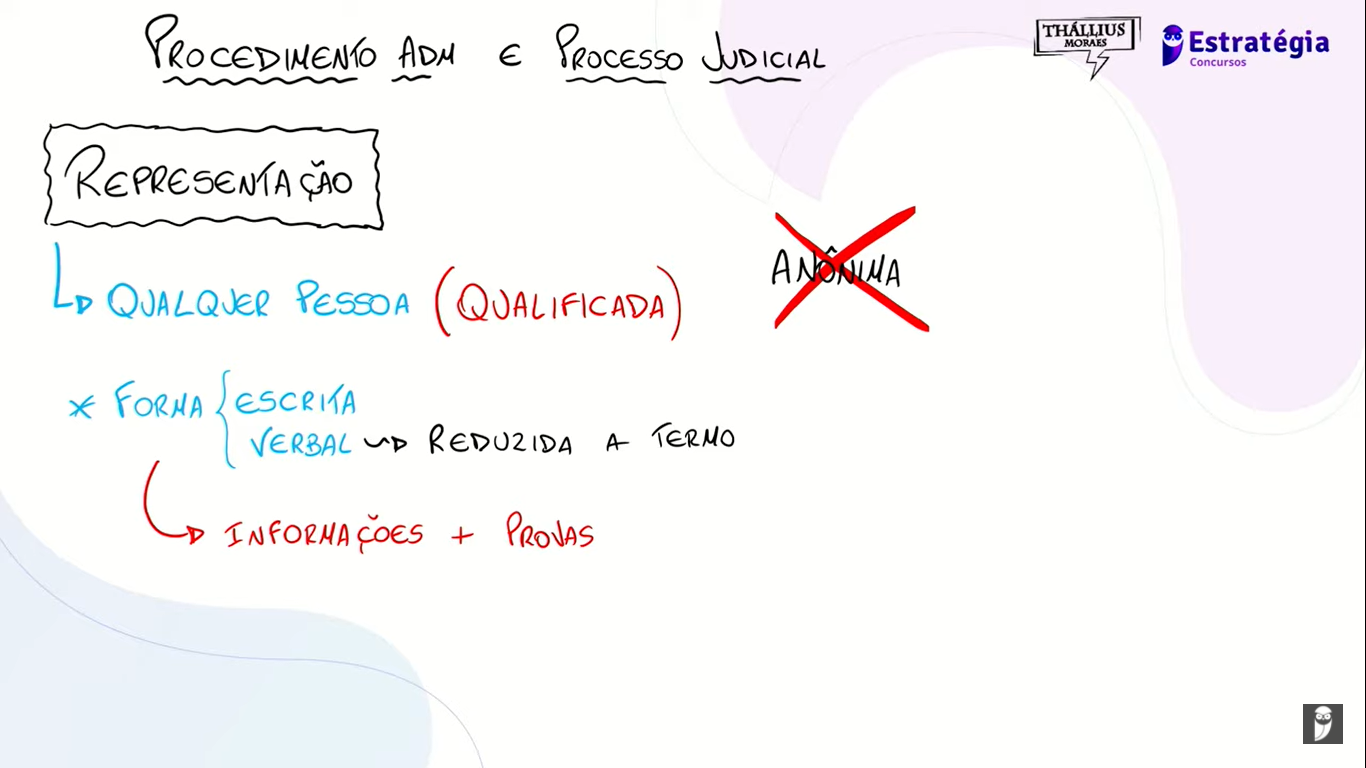 PROCEDIMENTO ADM E PROCESSO JUDICIAL
THÁLLIUS
MORAES
Estratégia
Concursos
REPRESENTAÇÃO
QUALQUER PESSOA (QUALIFICADA)
ANÔNIMA
* FORMA { ESCRITA
VERBAL → REDUZIDA A TERMO
INFORMAÇÕES + PROVAS